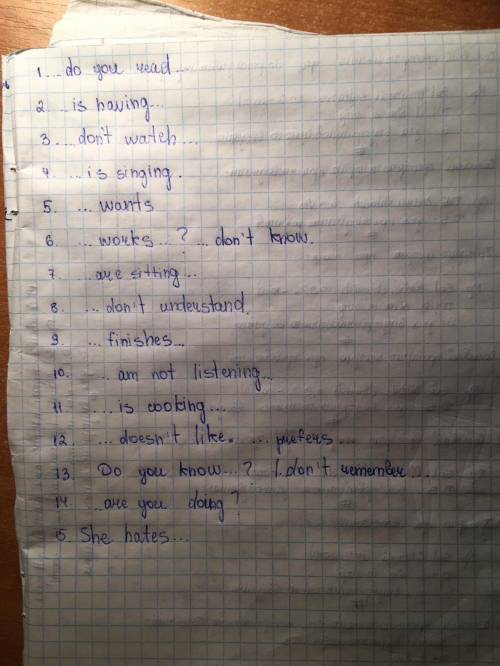 1 ... do you read...
2 ... is having...
3 ... don't watch...
4. ... is singing.
5. ... wants
6 ... works...? ... don't know.
7. ... are sitting...
8. ... don't understand.
9. ... finishes...
10. ... am not listening...
11 ... is cooking...
12. ... doesn't like. ... prefers...
13. Do you know...? I don't remember...
14. ... are you doing?
15. She hates...